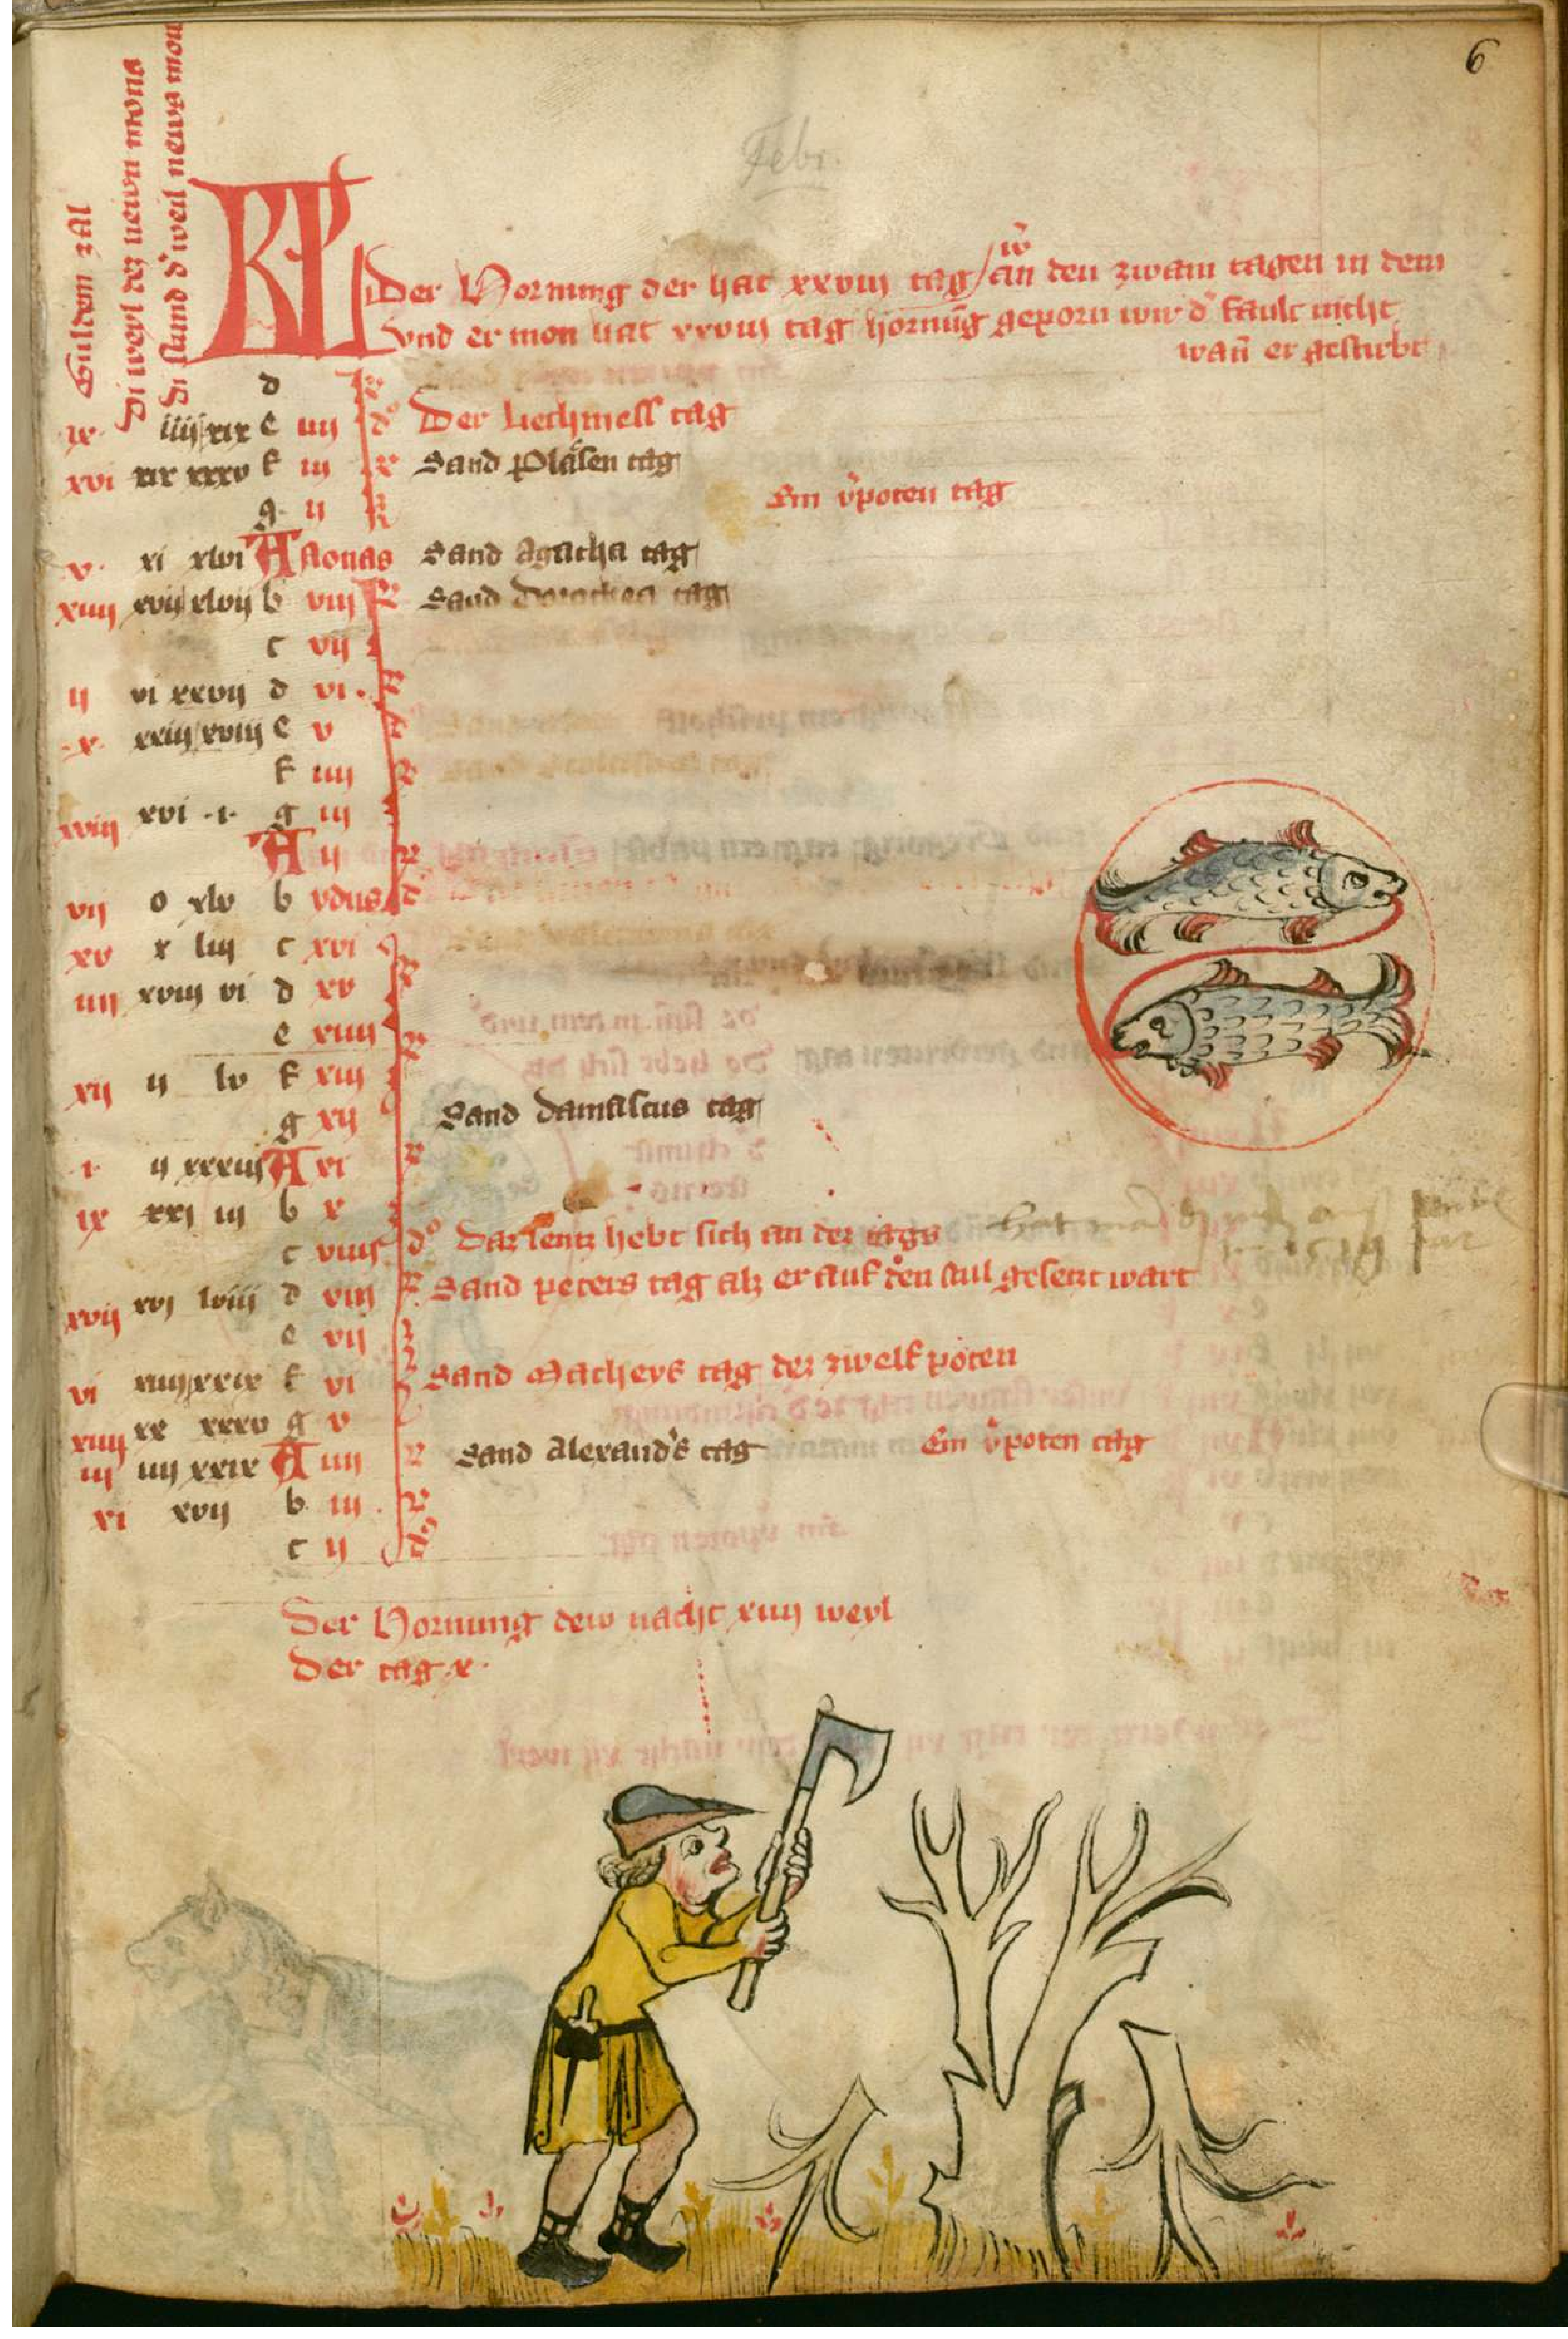 6
Febr.
Guldein zal
Di weyl dez newn mons
Di stund d' weil newn mon
KL
Der Hornung der hat xxviij tag / an den zwain tagen in dem
w̃
vnd er mon hat xxviij tag hornũg geporn wir d' fault nicht
wañ er gestirbt
d
ix iiij xix e iiij d' Der Liechmess tag
xvi xix xxxv f iij Sand Pläsen tag
g ij Ein v'poten tag
v xi xlvi A Nonas Sand Agatha tag
xiiij xvij xlvij b viij Sand Dorothea tag
c vij
ij vi xxvij d vi
x xxiij xviij e v
f iiij
xviij xvi i g iij
A ij
vij o xlv b ydus
xv x liij c xvi
iiij xviij vi d xv
e xiiij
xij ij lv f xiij
g xij Sand damascus tag
i ij xxxiij A xi
ix xxj iij b x
c viiij d' Daz lentz hebt sich an dez tags
xvij xvj lviij d viij Sand peters tag alz er auf den stul gesetzt wart
e vij
vi xiiij xxix f vi Sand Matheys tag dez zwelf poten
xiiij xx xxxv g v
iij iiij xxix A iiij Sand Alexand's tag Ein v'poten tag
xi xvij b iij
c ij
Der Hornung dew nacht xiiij weyl
Der tag x